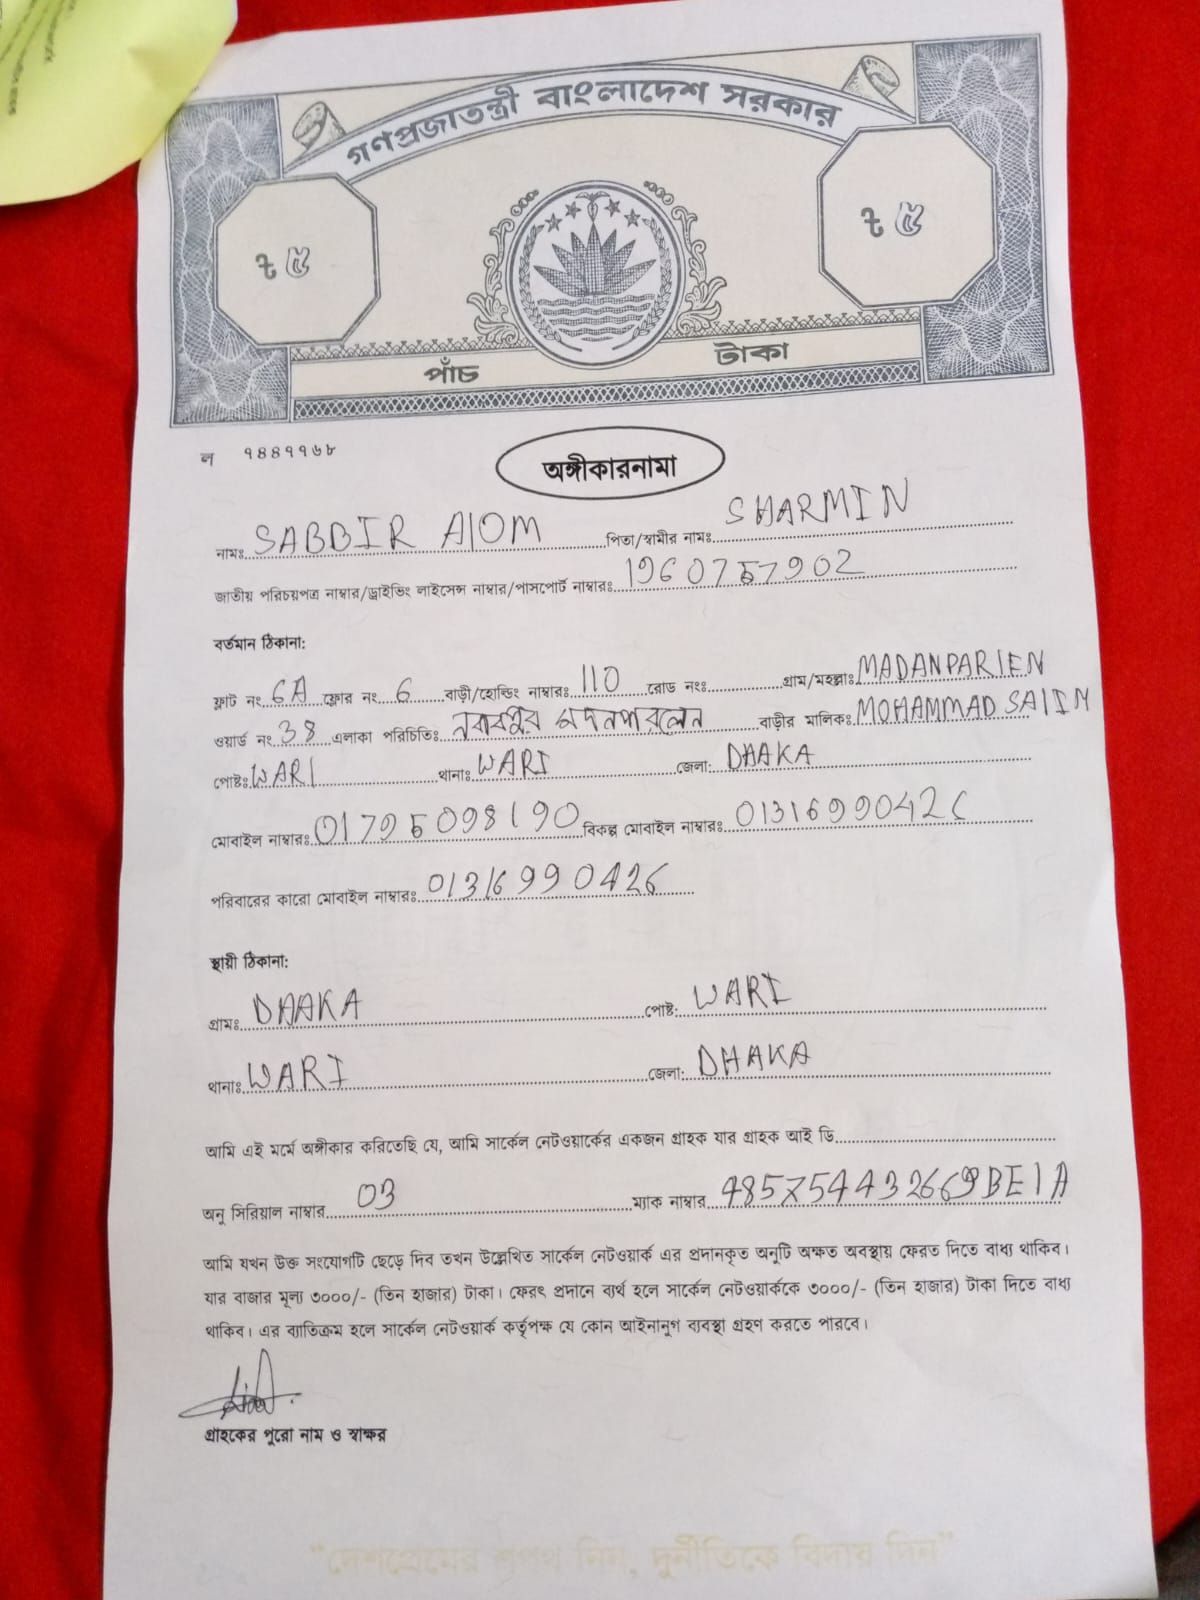 গণপ্রজাতন্ত্রী বাংলাদেশ সরকার
৳ ৫
৳ ৫
পাঁচ টাকা
ল ৭৪৪৭৭৬৮
অঙ্গীকারনামা
নামঃ SABBIR AlOM পিতা/স্বামীর নামঃ SHARMIN
জাতীয় পরিচয়পত্র নাম্বার/ড্রাইভিং লাইসেন্স নাম্বার/পাসপোর্ট নাম্বারঃ 1960757902
বর্তমান ঠিকানা:
ফ্লাট নং 6A ফ্লোর নং 6 বাড়ী/হোল্ডিং নাম্বারঃ 110 রোড নংঃ গ্রাম/মহল্লাঃ MADANPARlEN
ওয়ার্ড নং 38 এলাকা পরিচিতিঃ নবাবপুর মদনপারলেন বাড়ীর মালিকঃ MOHAMMAD SAlIM
পোষ্টঃ WARI থানাঃ WARI জেলা: DHAKA
মোবাইল নাম্বারঃ 01795098190 বিকল্প মোবাইল নাম্বারঃ 01316990426
পরিবারের কারো মোবাইল নাম্বারঃ 01316990426
স্থায়ী ঠিকানা:
গ্রামঃ DHAKA পোষ্ট: WARI
থানাঃ WARI জেলা: DHAKA
আমি এই মর্মে অঙ্গীকার করিতেছি যে, আমি সার্কেল নেটওয়ার্কের একজন গ্রাহক যার গ্রাহক আই ডি
অনু সিরিয়াল নাম্বার 03 ম্যাক নাম্বার
আমি যখন উক্ত সংযোগটি ছেড়ে দিব তখন উল্লেখিত সার্কেল নেটওয়ার্ক এর প্রদানকৃত অনুটি অক্ষত অবস্থায় ফেরত দিতে বাধ্য থাকিব।
যার বাজার মূল্য ৩০০০/- (তিন হাজার) টাকা। ফেরৎ প্রদানে ব্যর্থ হলে সার্কেল নেটওয়ার্ককে ৩০০০/- (তিন হাজার) টাকা দিতে বাধ্য
থাকিব। এর ব্যাতিক্রম হলে সার্কেল নেটওয়ার্ক কর্তৃপক্ষ যে কোন আইনানুগ ব্যবস্থা গ্রহণ করতে পারবে।
গ্রাহকের পুরো নাম ও স্বাক্ষর
"দেশপ্রেমের শপথ নিন, দুর্নীতিকে বিদায় দিন"